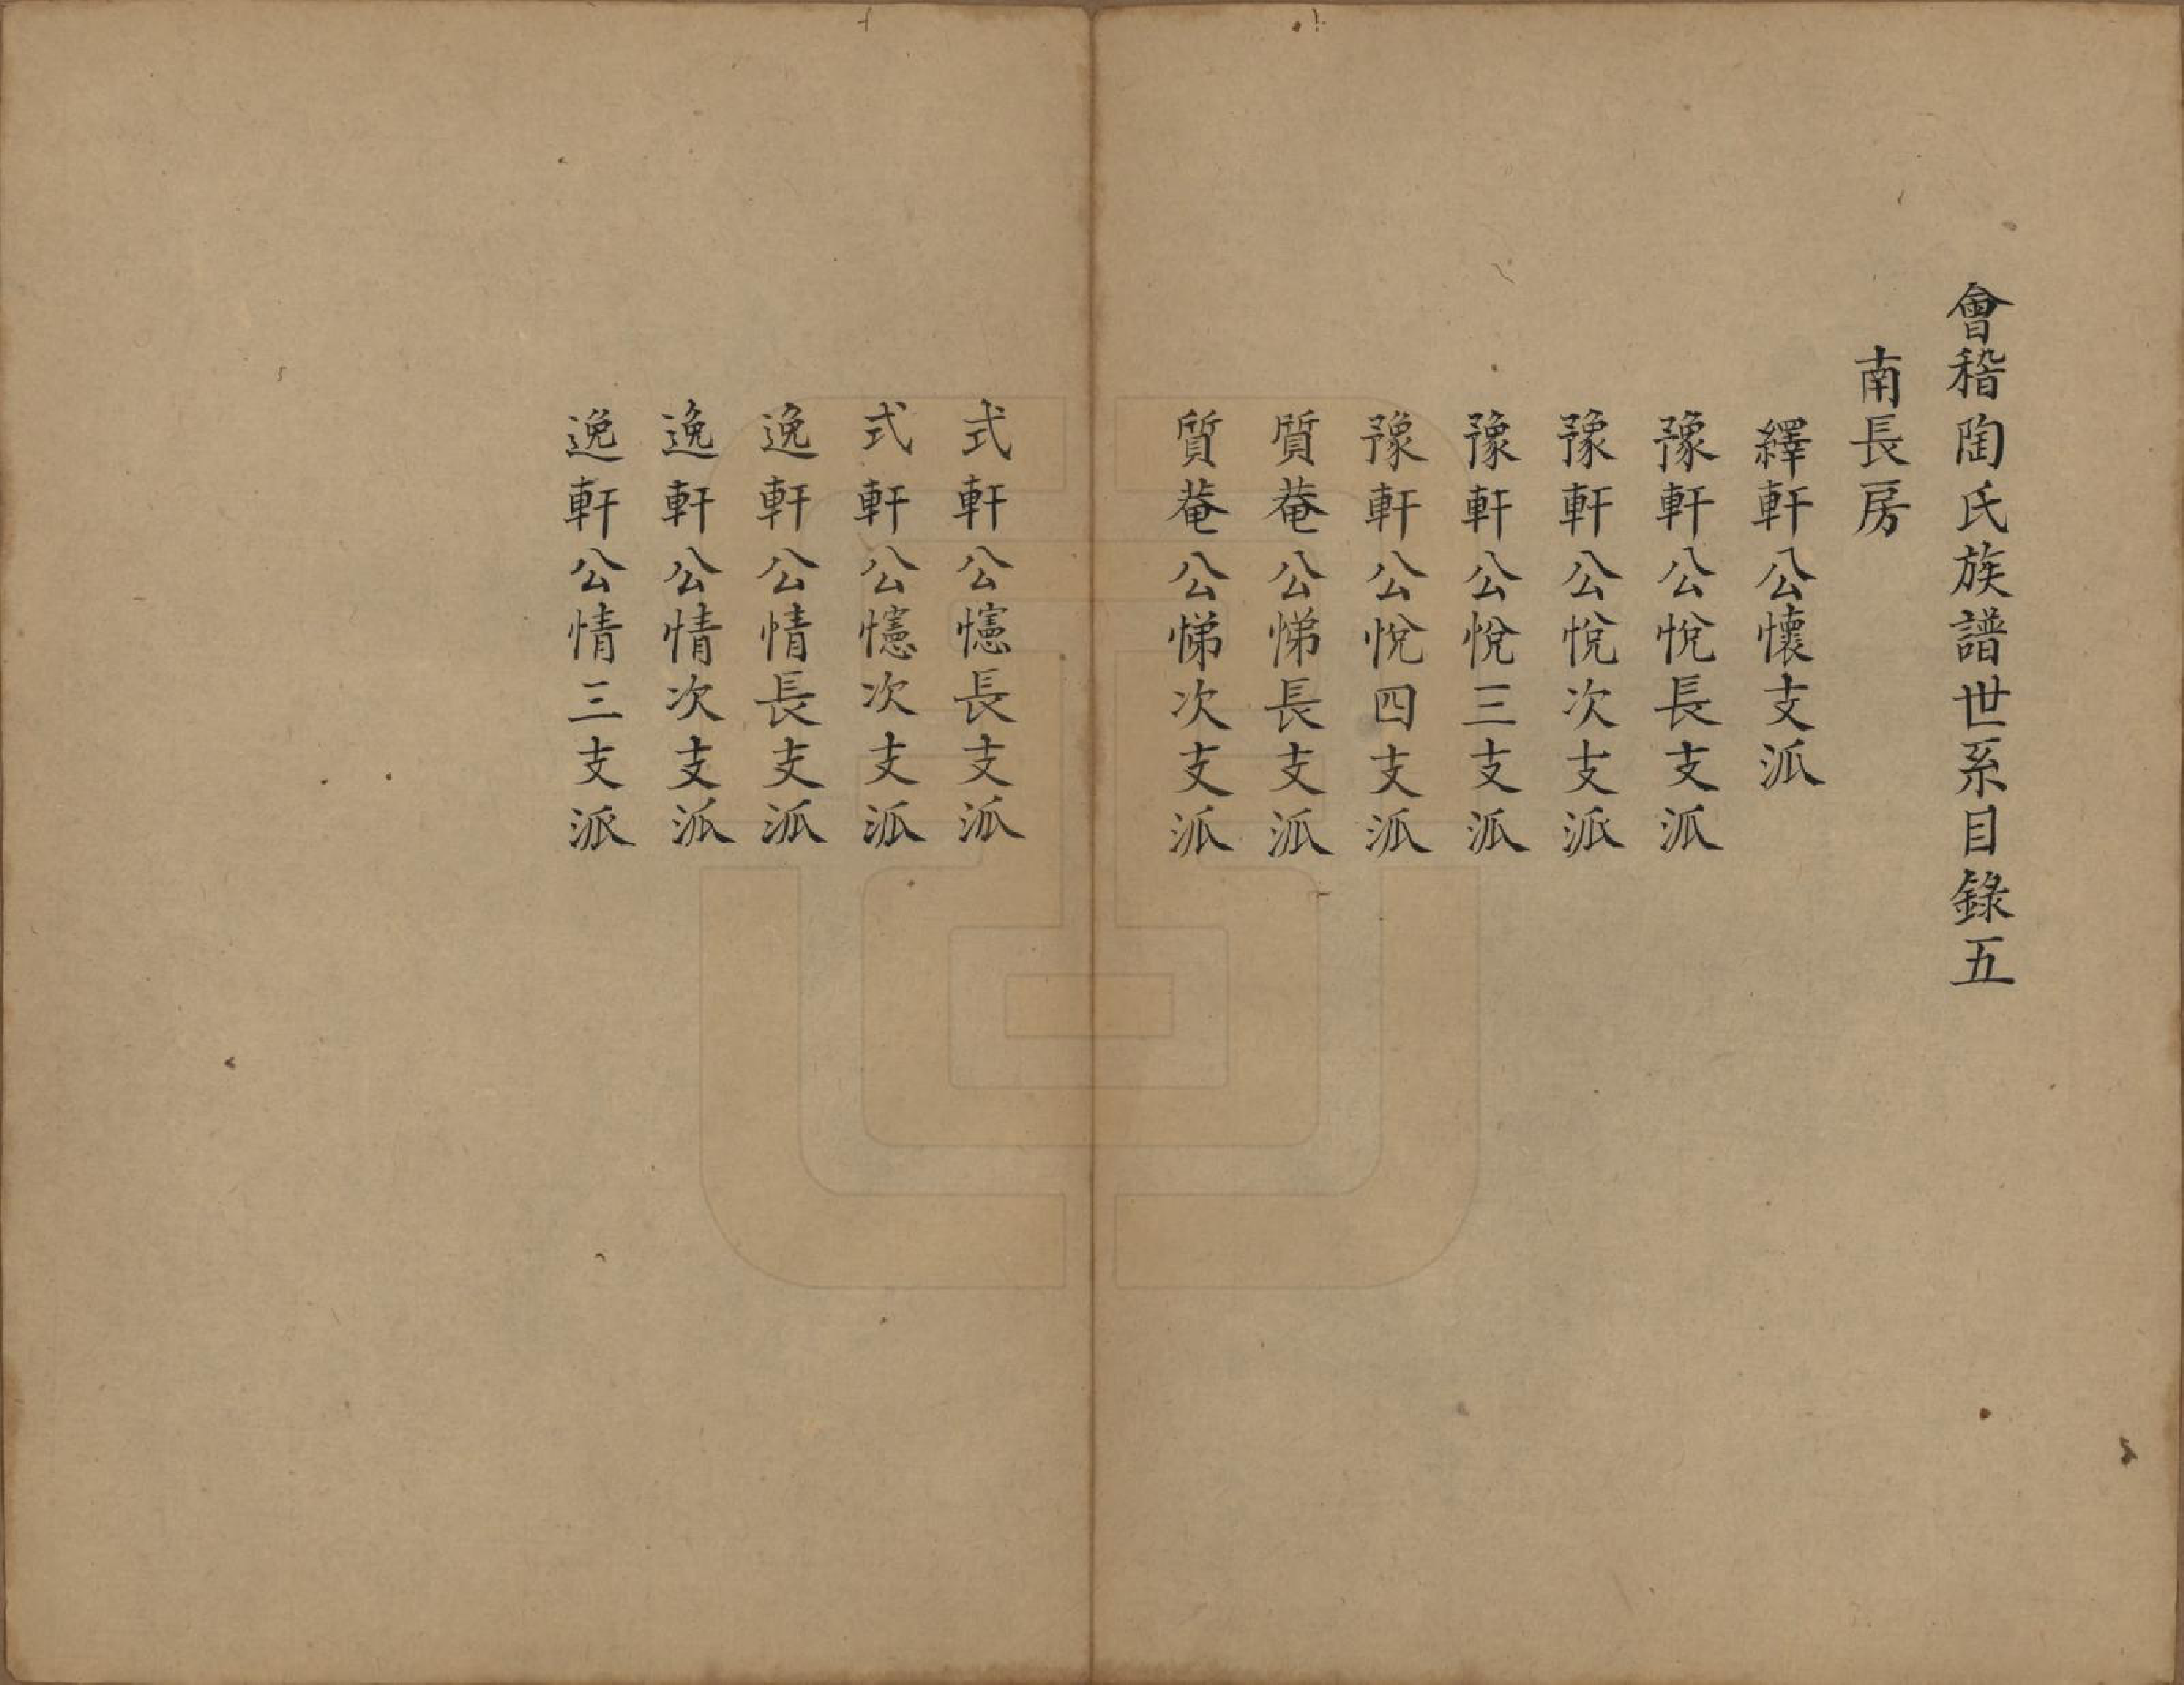 會稽陶氏族譜世系目錄五
南長房
繹軒公懷支派
豫軒公悅長支派
豫軒公悅次支派
豫軒公悅三支派
豫軒公悅四支派
質菴公悌長支派
質菴公悌次支派
式軒公憲長支派
式軒公憲次支派
逸軒公情長支派
逸軒公情次支派
逸軒公情三支派